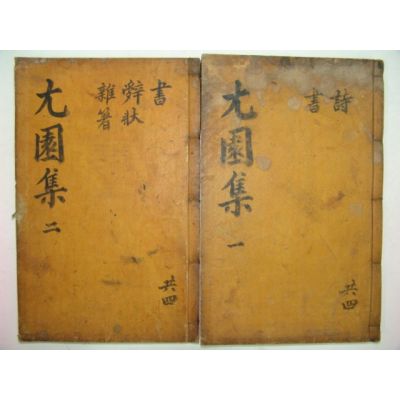 詩
書
尤園集 一
共四
書
辭狀
雜箸
尤園集 二
共四